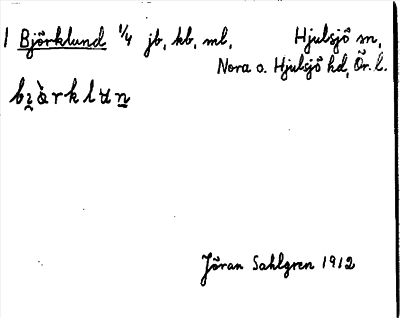 1 Björklund 1/4 jb, kb, ml, Hjulsjö sn,
Nora o. Hjulsjö hd, Ör. l.
bi̯ä̀rklun
Jöran Sahlgren 1912